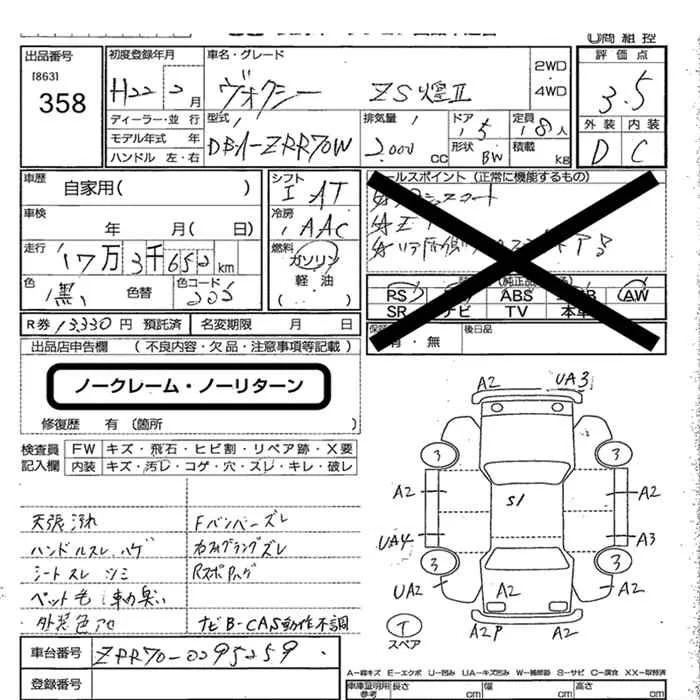 出品番号
[863]
358
初度登録年月
H22 2月
ディーラー・並行
モデル年式 年
ハンドル 左・右
車名・グレード
ヴォクシー ZS煌Ⅱ
2WD
4WD
型式
DBA-ZRR70W
排気量
2000cc
ドア
5
形状
BW
定員
8人
積載
kg
評価点
3.5
外装 内装
D C
車歴
自家用( )
車検
年 月( 日)
走行
17万3千652km
色
黒
色替
色コード
シフト
I AT
冷房
AAC
燃料
ガソリン
軽油
( )
セールスポイント (正常に機能するもの)
PS ABS AW
SR ナビ TV 本革
有・無
後日品
R券 13,330円 預託済
名変期限 月 日
出品店申告欄 (不良内容・欠品・注意事項等記載)
ノークレーム・ノーリターン
修復歴 有〔箇所 〕
検査員記入欄
FW キズ・飛石・ヒビ割・リペア跡・X要
内装 キズ・汚レ・コゲ・穴・スレ・キレ・破レ
天張汚れ Fバンパーズレ
ハンドルスレ、ハゲ
シートスレ シミ
ペット毛 車内臭い
外装色アセ ナビB-CAS動作不調
車台番号
ZRR70-0295259
登録番号
A2 UA3
3 3
A2 S1 A2
UA4 A3
3 3
UA2 A2 A2
A2P A2
T
スペア
A-線キズ E-エクボ U-凹み UA-キズ凹み W-補修跡 S-サビ C-腐食 XX-取替済
車庫証明用参考 長さ cm 幅 cm 高さ cm